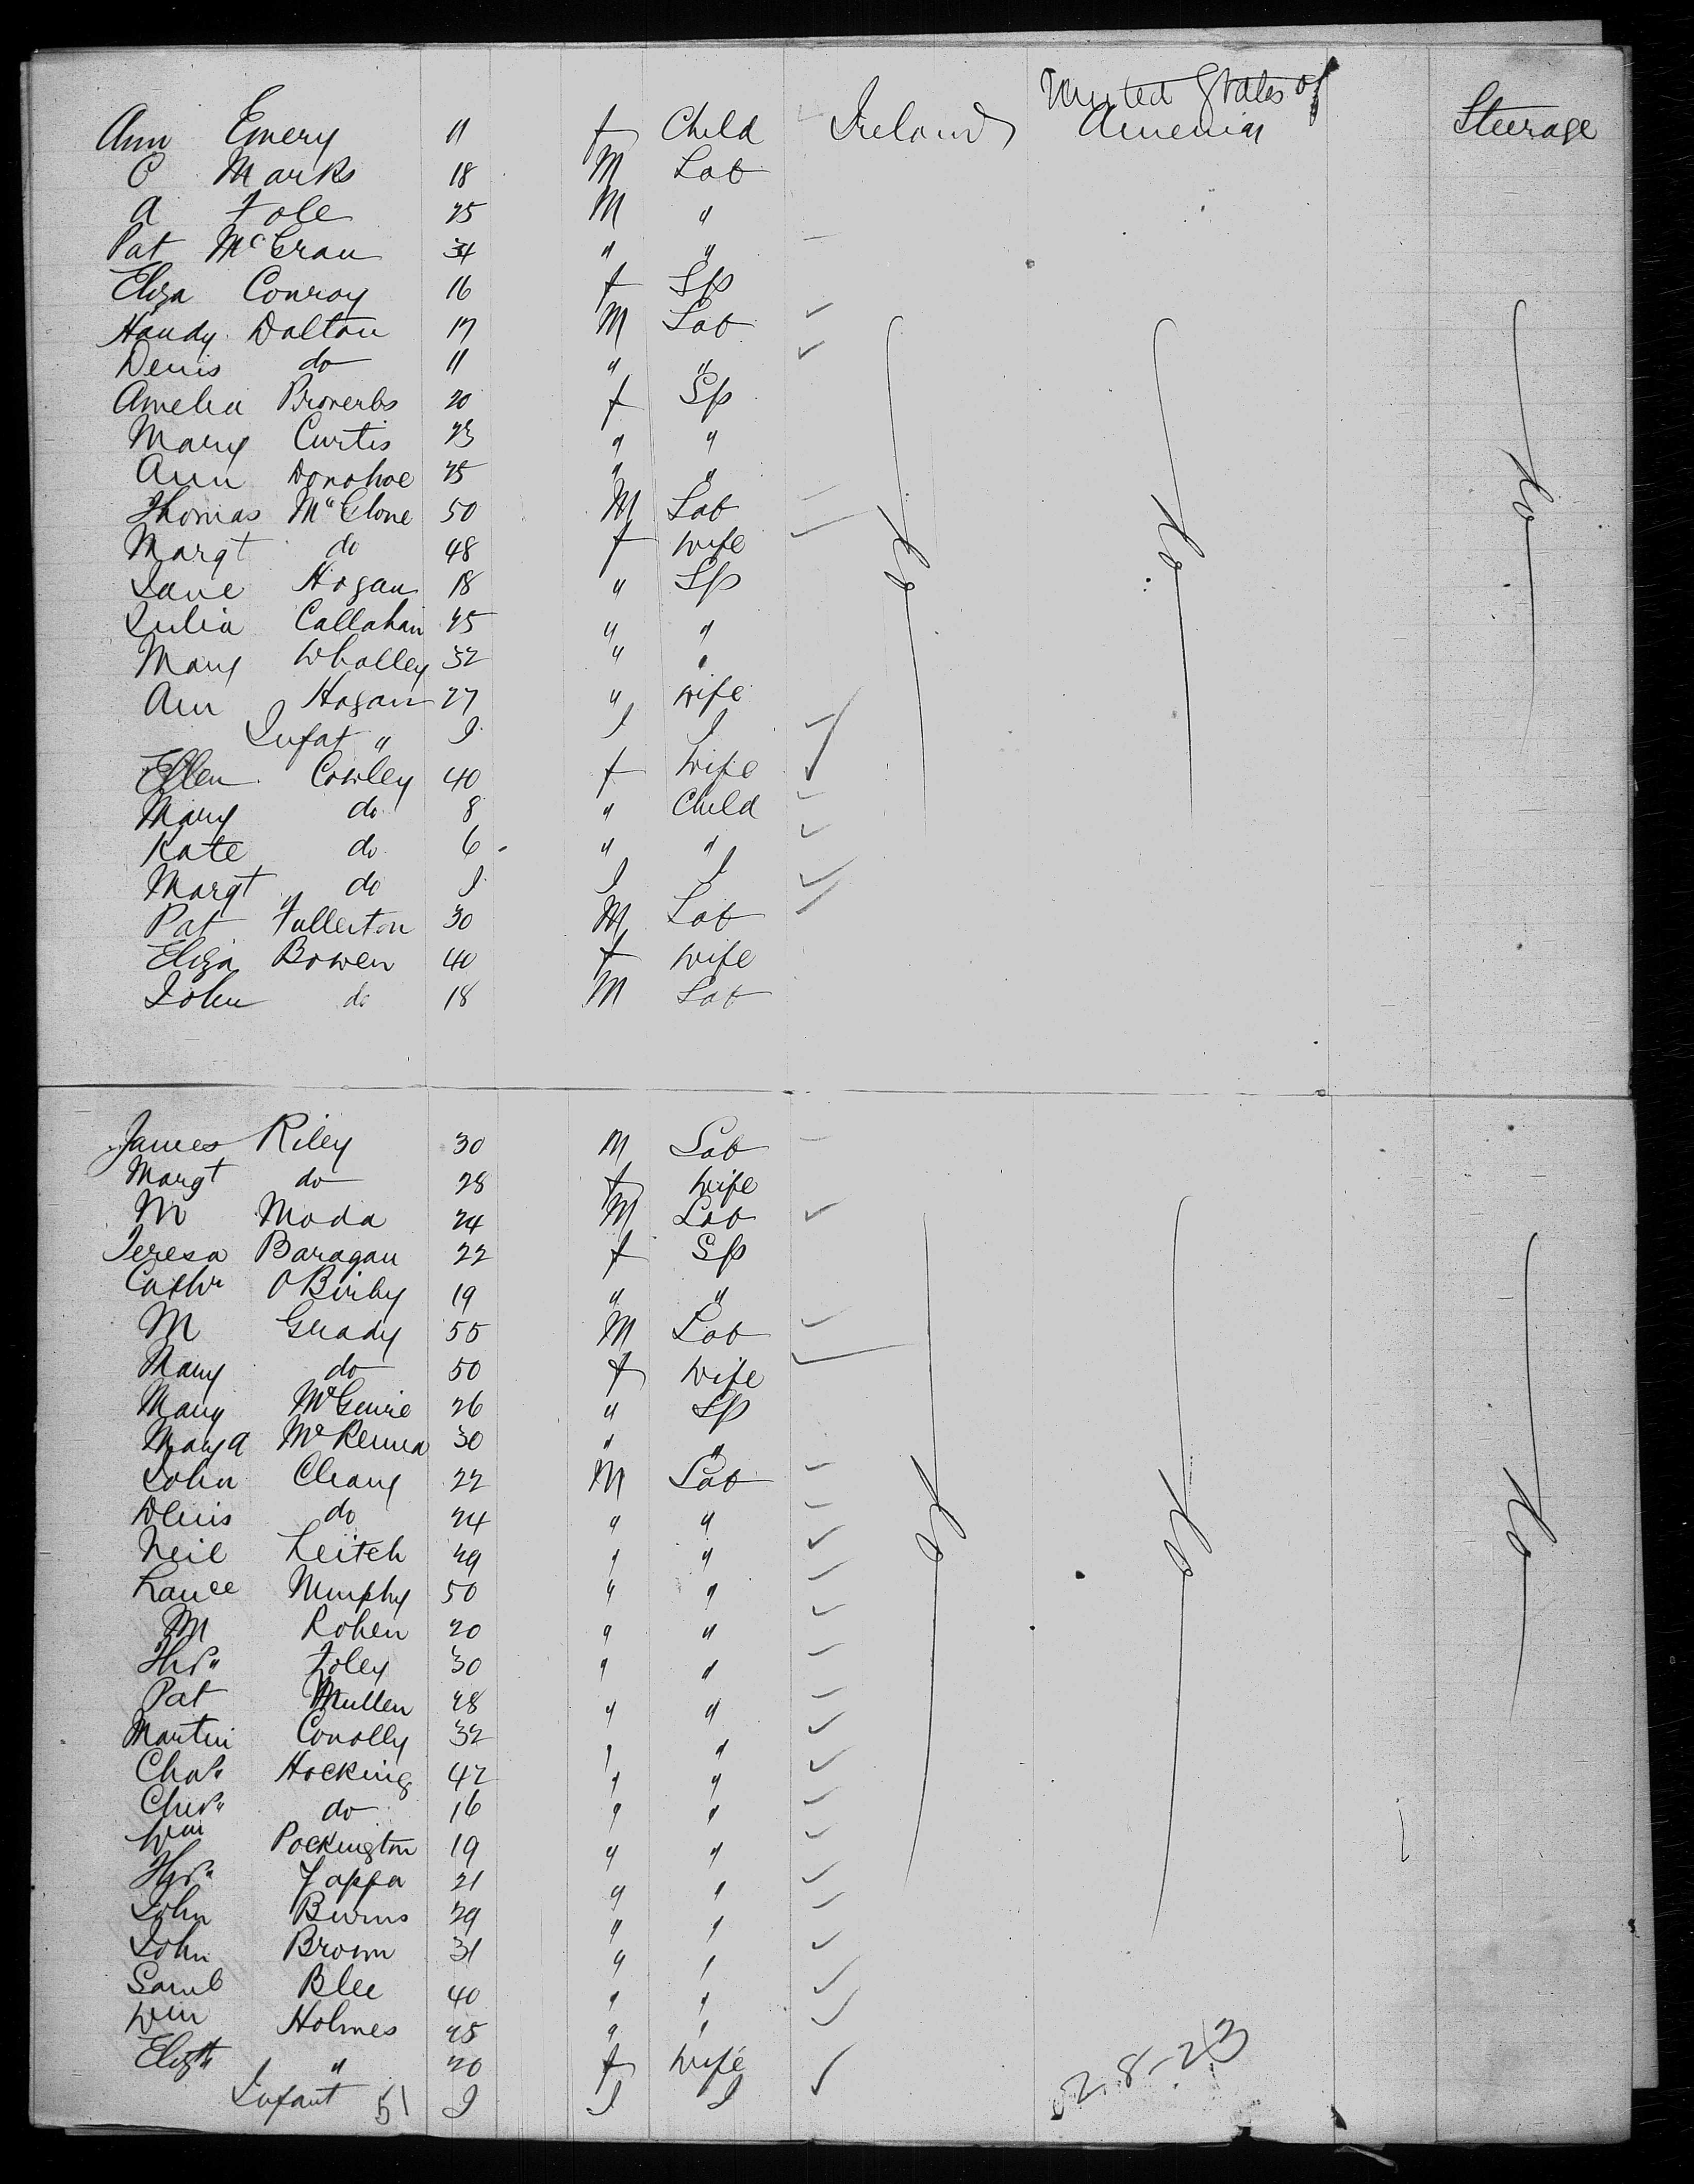 United States of
Ann Emery 11 f Child Ireland America Steerage
C Marks 18 M Lab
A Fole 25 M "
Pat McGrau 34 " "
Eliza Conroy 16 f Sp
Handy Dalton 17 M Lab
Denis do 11 " "
Amelia Proverbs 20 f Sp
Mary Curtis 23 " "
Ann Donohoe 25 " "
Thomas McElone 50 M Lab
Margt do 48 f wife
Jane Hogan 18 " Sp
Julia Callahan 25 " "
Mary Whalley 32 " "
Ann Hogan 27 " wife
Infat " I I I
Ellen Cowley 40 f wife
Mary do 8 " Child
Kate do 6 " "
Margt do I I I
Pat Fullerton 30 M Lab
Eliza Bowen 40 f wife
John do 18 M Lab
do do do
James Riley 30 M Lab
Margt do 28 f wife
M Moda 24 M Lab
Teresa Baragan 22 f Sp
Cathr O Birby 19 " "
M Grady 55 M Lab
Mary do 50 f wife
Mary McGuire 26 " Sp
Mary A McKenna 30 " "
John Cleary 22 M Lab
Denis do 24 " "
Neil Leitch 29 " "
Lauce Murphy 50 " "
M Rohen 20 " "
Thos Foley 30 " "
Pat Mullen 28 " "
Martin Conolly 32 " "
Chas Hocking 42 " "
Chrs do 16 " "
Wm Pockington 19 " "
Thos Jappa 21 " "
John Burns 29 " "
John Brown 31 " "
Saml Blee 40 " "
Wm Holmes 25 " "
Elizth " 20 f wife
Infant 51 I I I
do do do
28-23